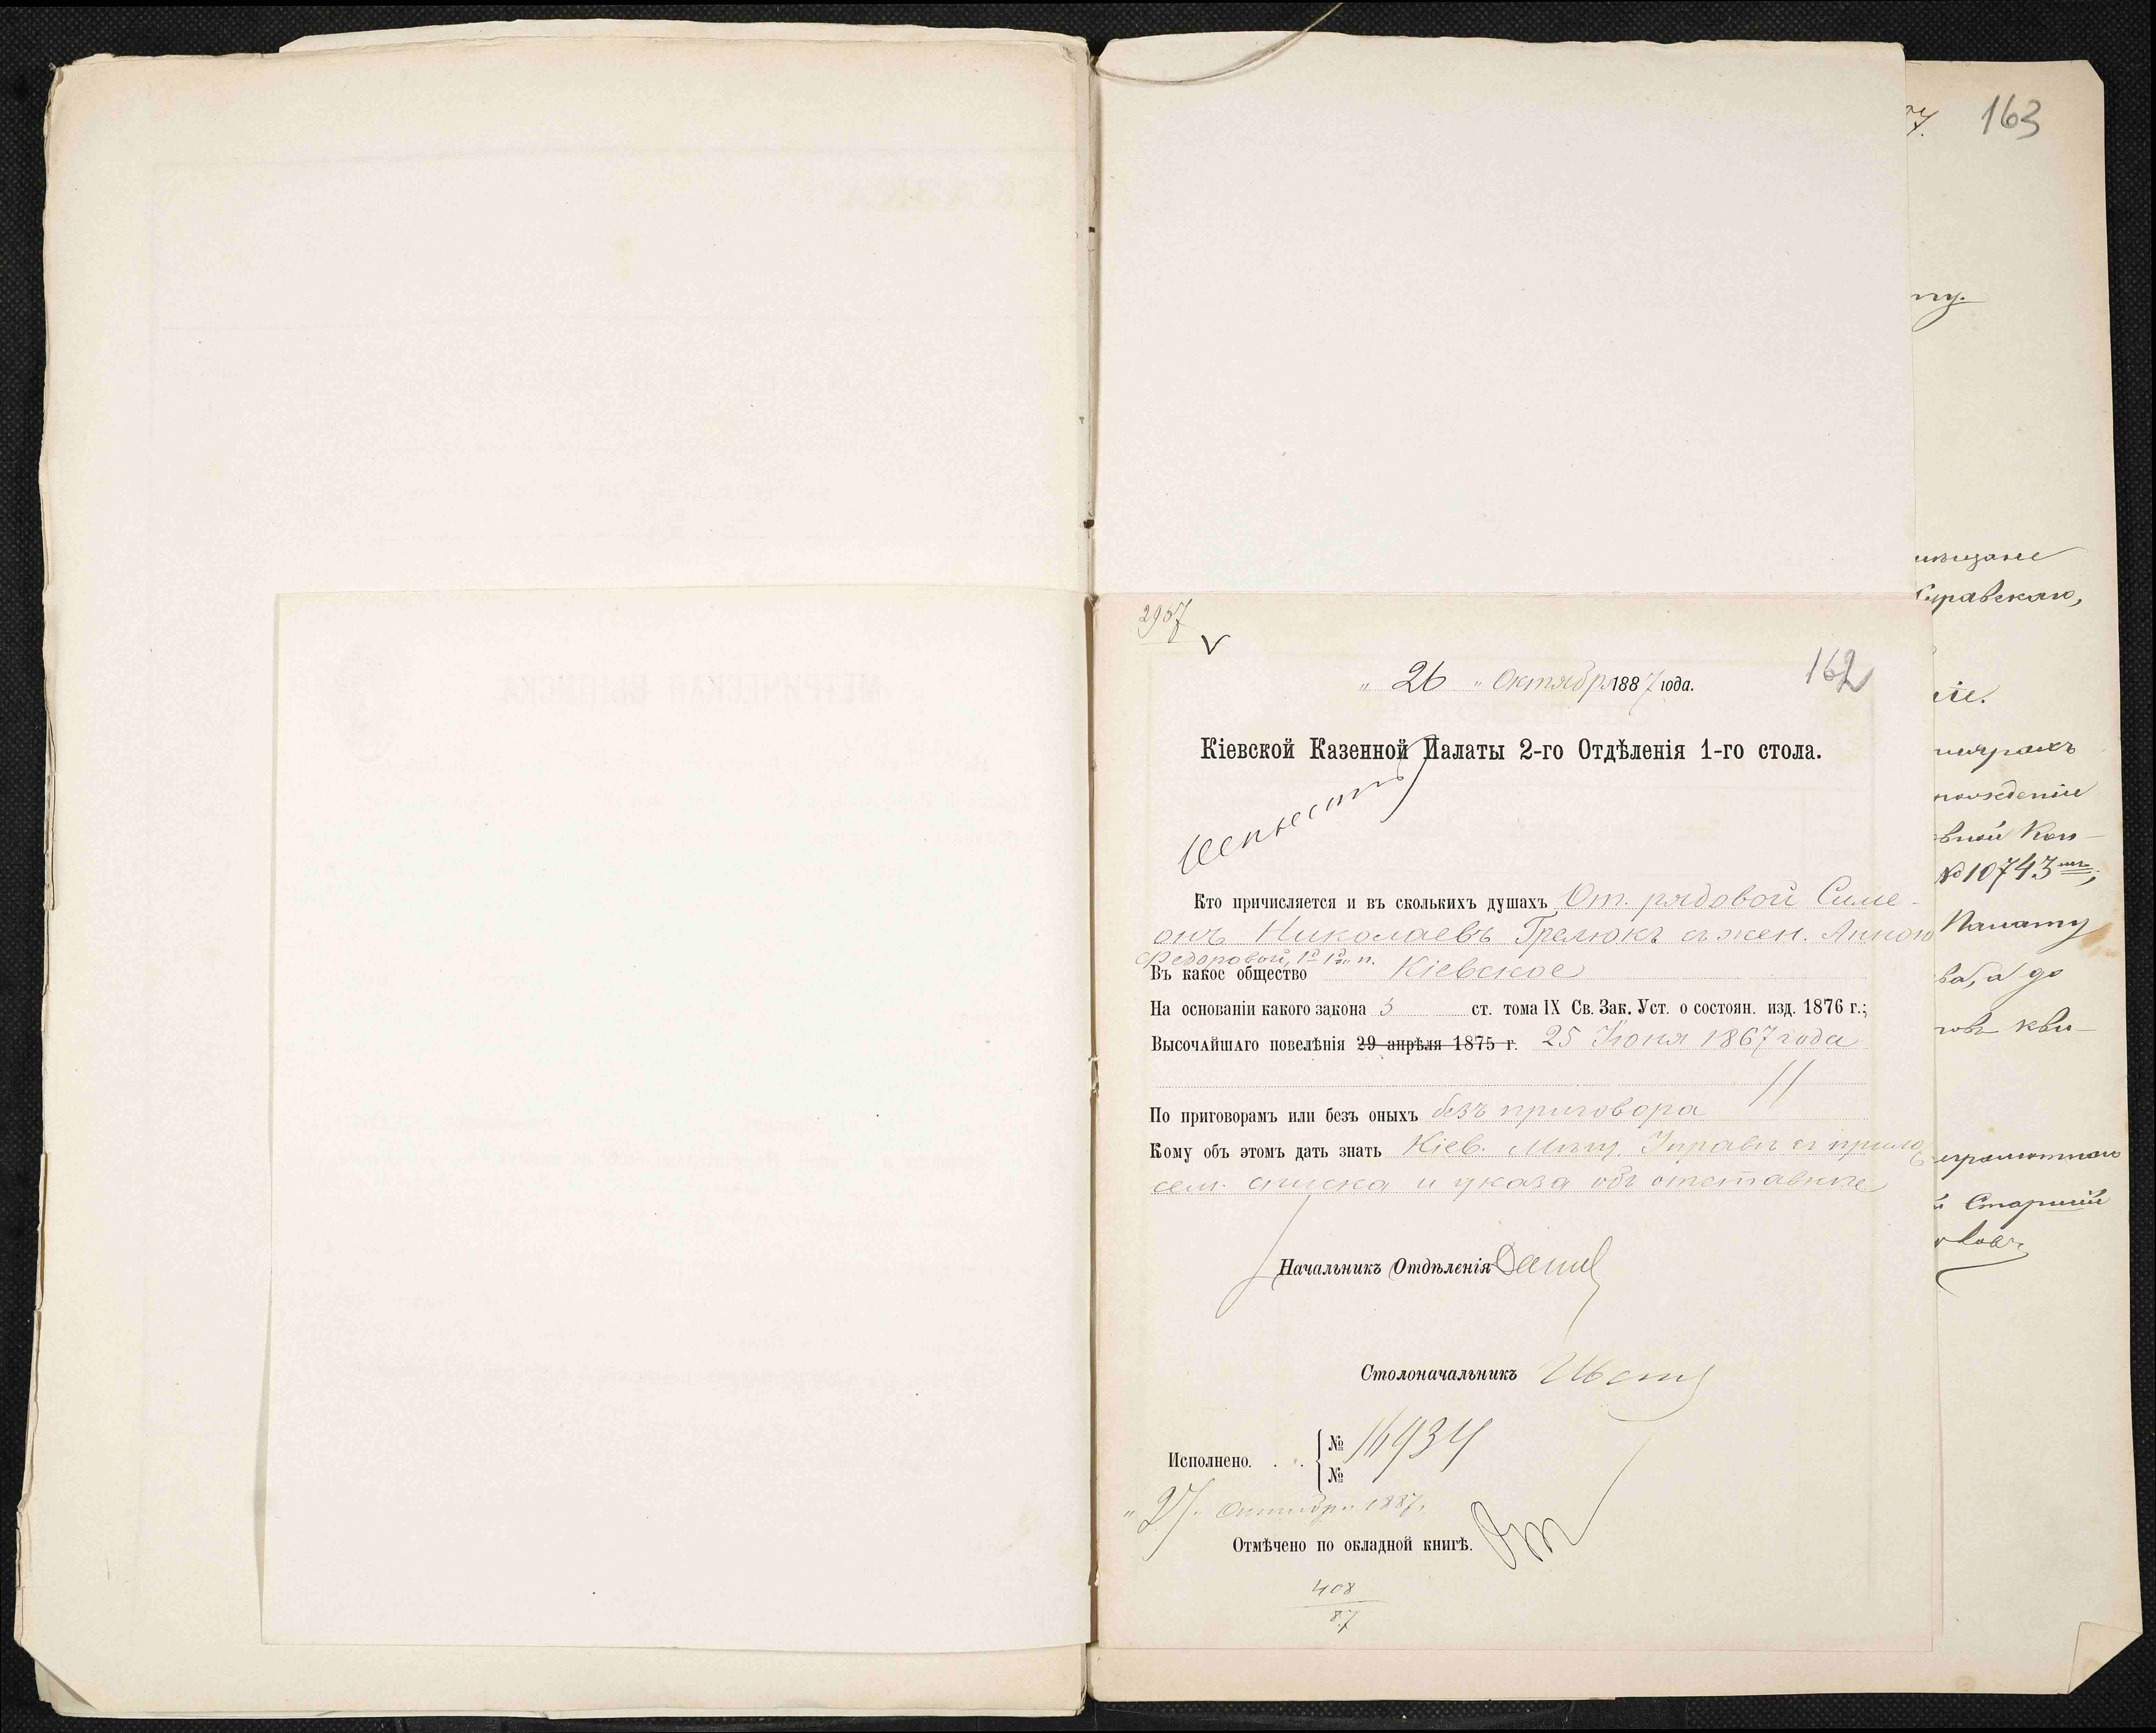 163
162
2957
" 26 " Октября 1887 года.
Кіевской Казенной Палаты 2-го Отдѣленія 1-го стола.
Кто причисляется и въ сколькихъ душахъ От. рядовой Симе-
онъ Николаевъ Грелюкъ съ жен. Анною
Федоровой,
Въ какое общество Кіевское
На основаніи какого закона 3 ст. тома IX Св. Зак. Уст. о состоян. изд. 1876 г.;
Высочайшаго повелѣнія 29 апрѣля 1875 г. 25 Іюня 1867 года
По приговорамъ или безъ оныхъ безъ приговора
Кому объ этомъ дать знать Кіев. Мѣщ. Управѣ съ прило
сем. списка и указа объ отставкѣ
Начальникъ Отдѣленія
Столоначальникъ
Исполнено. . . № 16934
№
" 27 " Октября 1887.
Отмѣчено по окладной книгѣ.
408
87
ту.
Куравскаго,
іе.
вной Кон-
№ 10743
Палату
ва, а до
овъ кви-
Старшій
МЕТРИЧЕСКАЯ ВЫПИСКА